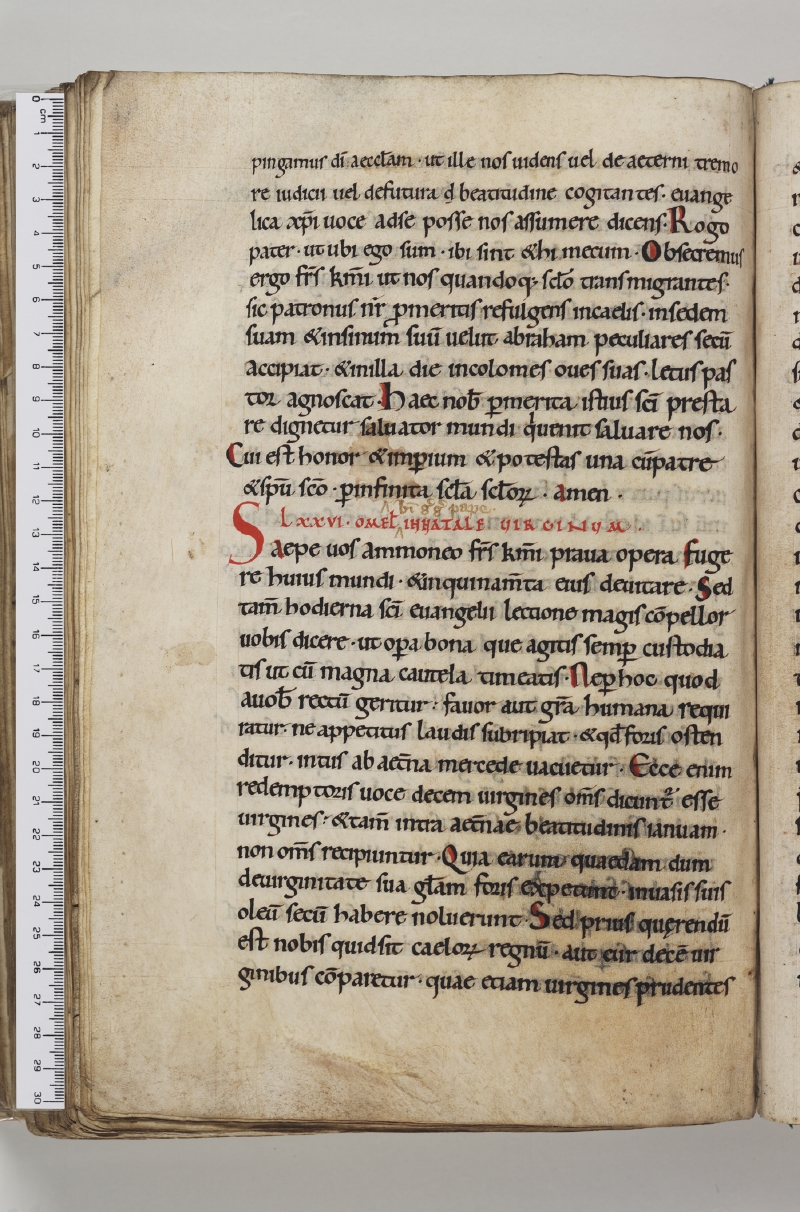 pingamus dī aecclām · ut ille nos uidens uel de aeterni tremo
re iudicii uel defutura q̄ beatitudine cogitantes · euange
lica xp̄i uoce adse posse nos assumere dicens · Rogo
pater · ut ubi ego sum · ibi sint &hi mecum · Obsecremus
ergo fr̄s km̄i ut nos quandoq; sclo transmigrantes ·
sic patronus nr̄ ꝓmeritis refulgens incaelis · insedem
suam &insinum suū uelut abraham peculiares secū
accipiat · &inilla die incolomes oues suas · letus pas
tor agnoscat · Haec nob̄ ꝑmerita istius sc̄i presta
re dignetur saluator mundi qui uenit saluare nos ·
Cui est honor &imꝑium &potestas una cū patre
&sp̄u sc̄o · ꝑinfinita scl̄a scl̄oꝝ · amen ·
bī gḡ pape
LXXVI · OMEL̄ IN NATALE VIRGINUM ·
Saepe uos ammoneo fr̄s km̄i praua opera fuge
re huius mundi · &inquinam̄ta eius deuitare · Sed
tam̄ hodierna sc̄i euangelii lectione magis cōpellor
uobis dicere · ut oꝑa bona que agitis semꝑ custodia
tis ut cū magna cautela timeatis · Ne ꝑ hoc quod
auob̄ rectū geritur · fauor aut gr̄a humana requi
ratur · ne appetitus laudis subripiat · &qd̄ foris osten
ditur · intus ab aet̄na mercede uacuetur · Ecce enim
redemptoris uoce decem uirgines om̄s dicunt̄ esse
uirgines · &tam̄ intra aet̄nae beatitudinis ianuam ·
non om̄s recipiuntur · Quia earum quaedam dum
deuirginitate sua gl̄am foris expetunt · inuasis suis
oleū secū habere noluerunt · Sed prius querendū
est nobis quidsit caeloꝝ regnū · aut cur decē uir
ginibus cōparetur · quae etiam uirgines prudentes